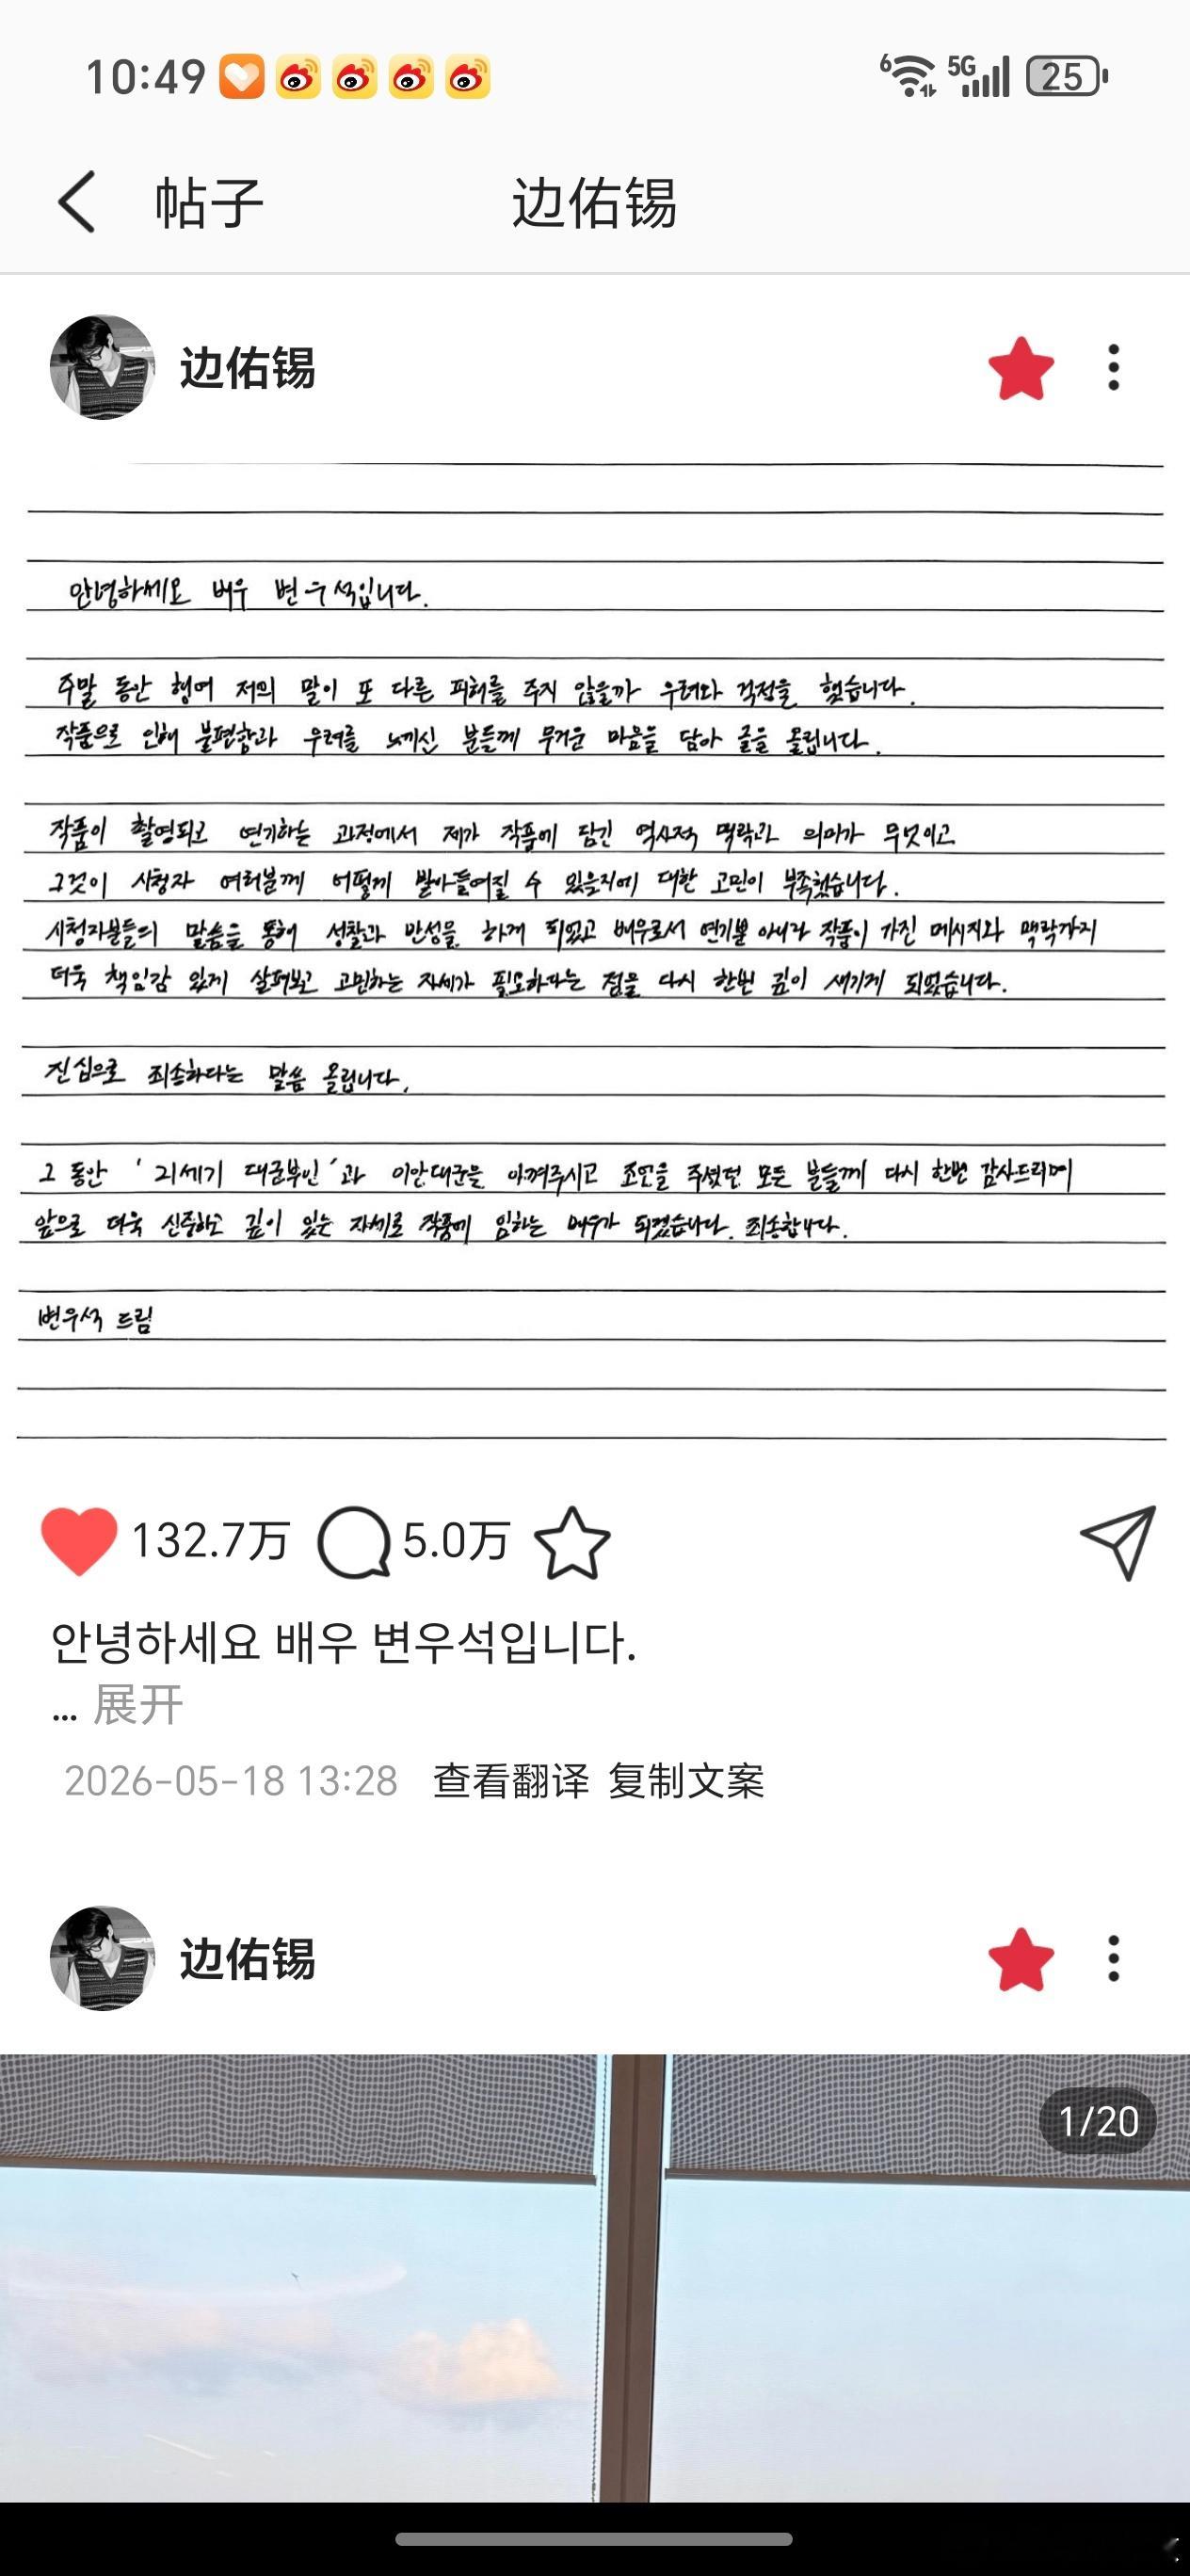 10:49
6 5G 25
帖子 边佑锡
边佑锡
안녕하세요 배우 변우석입니다.
주말 동안 혹여 저의 말이 또 다른 피해를 주지 않을까 우려와 걱정을 했습니다.
작품으로 인해 불편함과 우려를 느끼신 분들께 무거운 마음을 담아 글을 올립니다.
작품이 촬영되고 연기하는 과정에서 제가 작품에 담긴 역사적 맥락과 의미가 무엇이고
그것이 시청자 여러분께 어떻게 받아들여질 수 있을지에 대한 고민이 부족했습니다.
시청자분들의 말씀을 통해 성찰과 반성을 하게 되었고 배우로서 연기뿐 아니라 작품이 가진 메시지와 맥락까지
더욱 책임감 있게 살펴보고 고민하는 자세가 필요하다는 점을 다시 한번 깊이 새기게 되었습니다.
진심으로 죄송하다는 말씀 올립니다.
그 동안 '21세기 대군부인'과 이안대군을 아껴주시고 조언을 주셨던 모든 분들께 다시 한번 감사드리며
앞으로 더욱 신중하고 깊이 있는 자세로 작품에 임하는 배우가 되겠습니다. 죄송합니다.
변우석 드림
132.7万 5.0万
안녕하세요 배우 변우석입니다.
... 展开
2026-05-18 13:28 查看翻译 复制文案
边佑锡
1/20